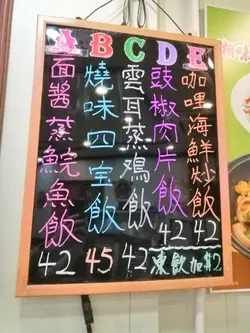 A
面醬蒸鯇魚飯
42
B
燒味四宝飯
45
C
雲耳蒸鷄飯
42
D
豉椒肉片飯
42
E
咖哩海鮮炒飯
42
凍飲加$2